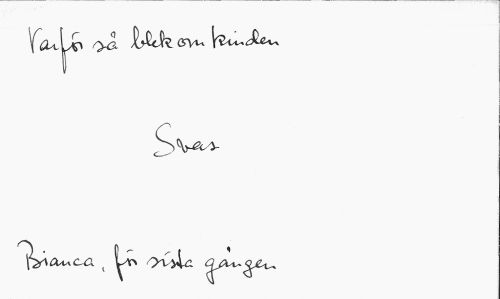 Varför så blek om kinden
Svar
Bianca, för sista gången